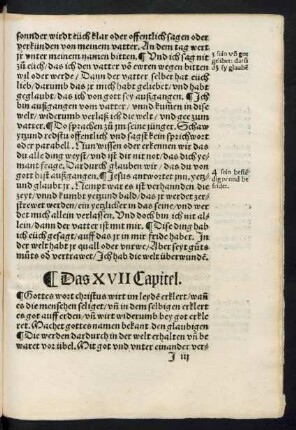 sonder wirdt eüch klar oder offentlich sagen oder
verkünden von meinem vatter. An dem tag wert
jr vnter meinem namen bitten. ¶ Vnd ich sag nit
zů eüch / das ich den vatter võ ewren wegen bitten
wil oder werde / Dann der vatter selber hat euch
lieb / darumb das jr mich habt geliebet / vnd habt
geglaubt / das ich von gott sey außgangen. ¶ Jch
bin außgangen vom vatter / vnnd kum̃en in dise
welt / widerumb verlaß ich die welt / vnd gee zum
vatter. ¶ Do sprachen zů jm seine jünger. Schaw
yezund redstu offentlich / vnd sagst kein sprichwort
oder parabell. Nun wissen oder erkennen wir das
du alle ding weyst / vnd ist dir nit not / das dich ye-
mant frage. Dardurch glauben wir / das du von
gott bist außgangen. ¶ Jesus antwortet jnn / yez-
und glaubt jr. Nempt war es ist verhanndẽ die
zeyt / vnnd kumbt yezund bald / das jr werdet zer-
strewet werden / ein yezlicher in das seine / vnd wer
det mich allein verlassen. Vnd doch bin ich nit al-
lein / dann der vatter ist mit mir. ¶ Dise ding hab
ich eüch gesagt / auff das jr in mir fride habet. Jn
der welt habt jr quall oder vnrwe / Aber seyt gůts
můts od vertrawet / Jch hab die welt überwundẽ.
3 sein võ got
geliebt darũ
dz sy glaubẽ
¶ Das XVII Capitel.
¶ Gottes wort christus wirt im leydẽ erklert / wañ
es die menschen seliget / vñ in dem selbigen erklert
es got auff erden / vñ wirt widerumb bey got erkle
ret. Machet gottes namen bekant den glaubigen
¶ Die werden dardurch in der welt erhalten vñ be
waret vor übel. Mit got vnd vnter einander ver-
J iij